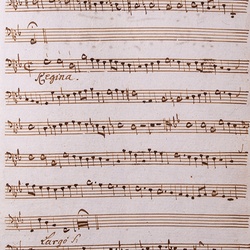 Regina.
Largo